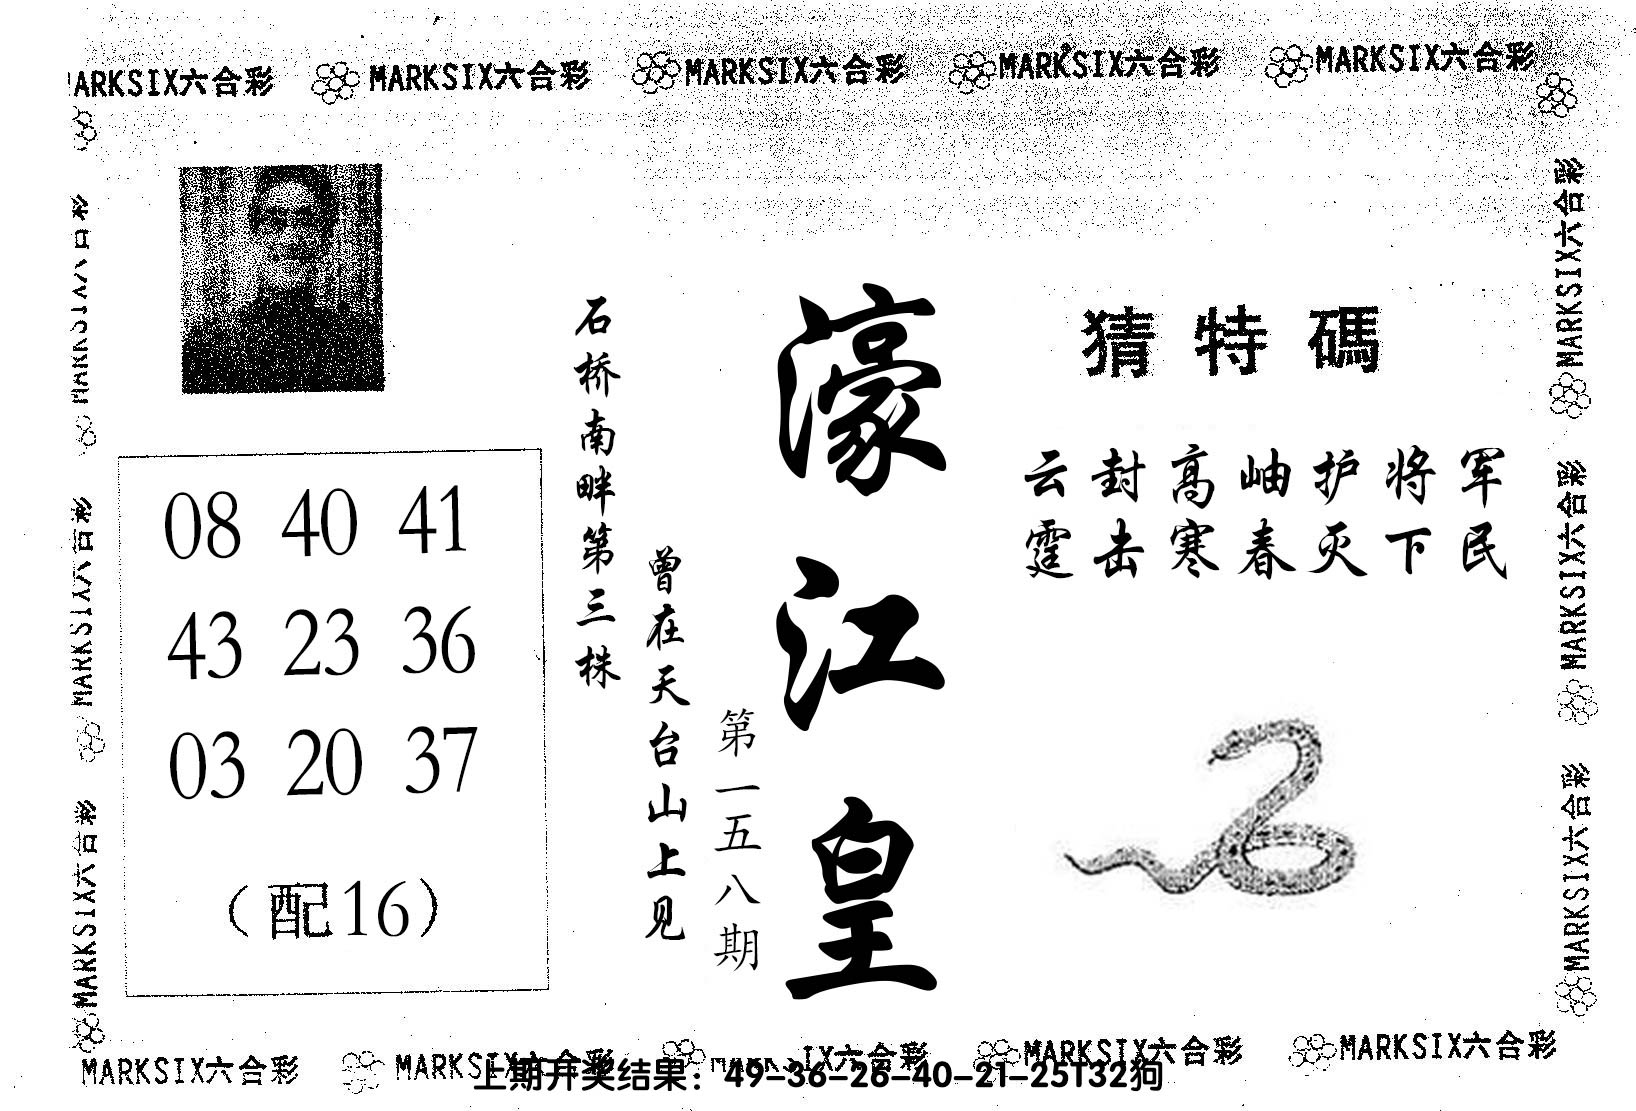 MARKSIX六合彩 MARKSIX六合彩 MARKSIX六合彩 MARKSIX六合彩 MARKSIX六合彩
MARKSIX六合彩
MARKSIX六合彩
MARKSIX六合彩
MARKSIX六合彩
MARKSIX六合彩
MARKSIX六合彩
猜特碼
云封高岫护将军
霆击寒春灭下民
濠江皇
第一五八期
曾在天台山上见
石桥南畔第三株
08 40 41
43 23 36
03 20 37
(配16)
MARKSIX六合彩 MARKSIX六合彩 MARKSIX六合彩 MARKSIX六合彩 MARKSIX六合彩
上期开奖结果：49-36-26-40-21-25T32狗